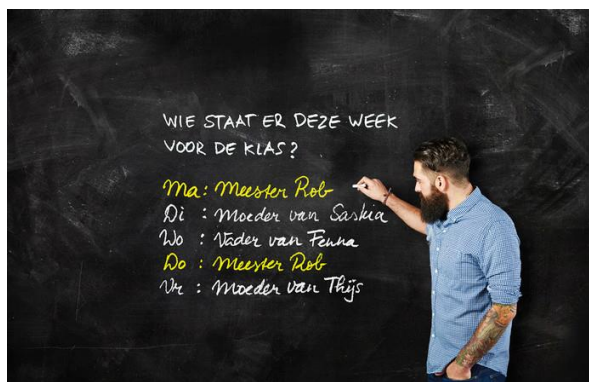 WIE STAAT ER DEZE WEEK
VOOR DE KLAS?
Ma: Meester Rob
Di : Moeder van Saskia
Wo : Vader van Fenna
Do : Meester Rob
Vr : Moeder van Thijs